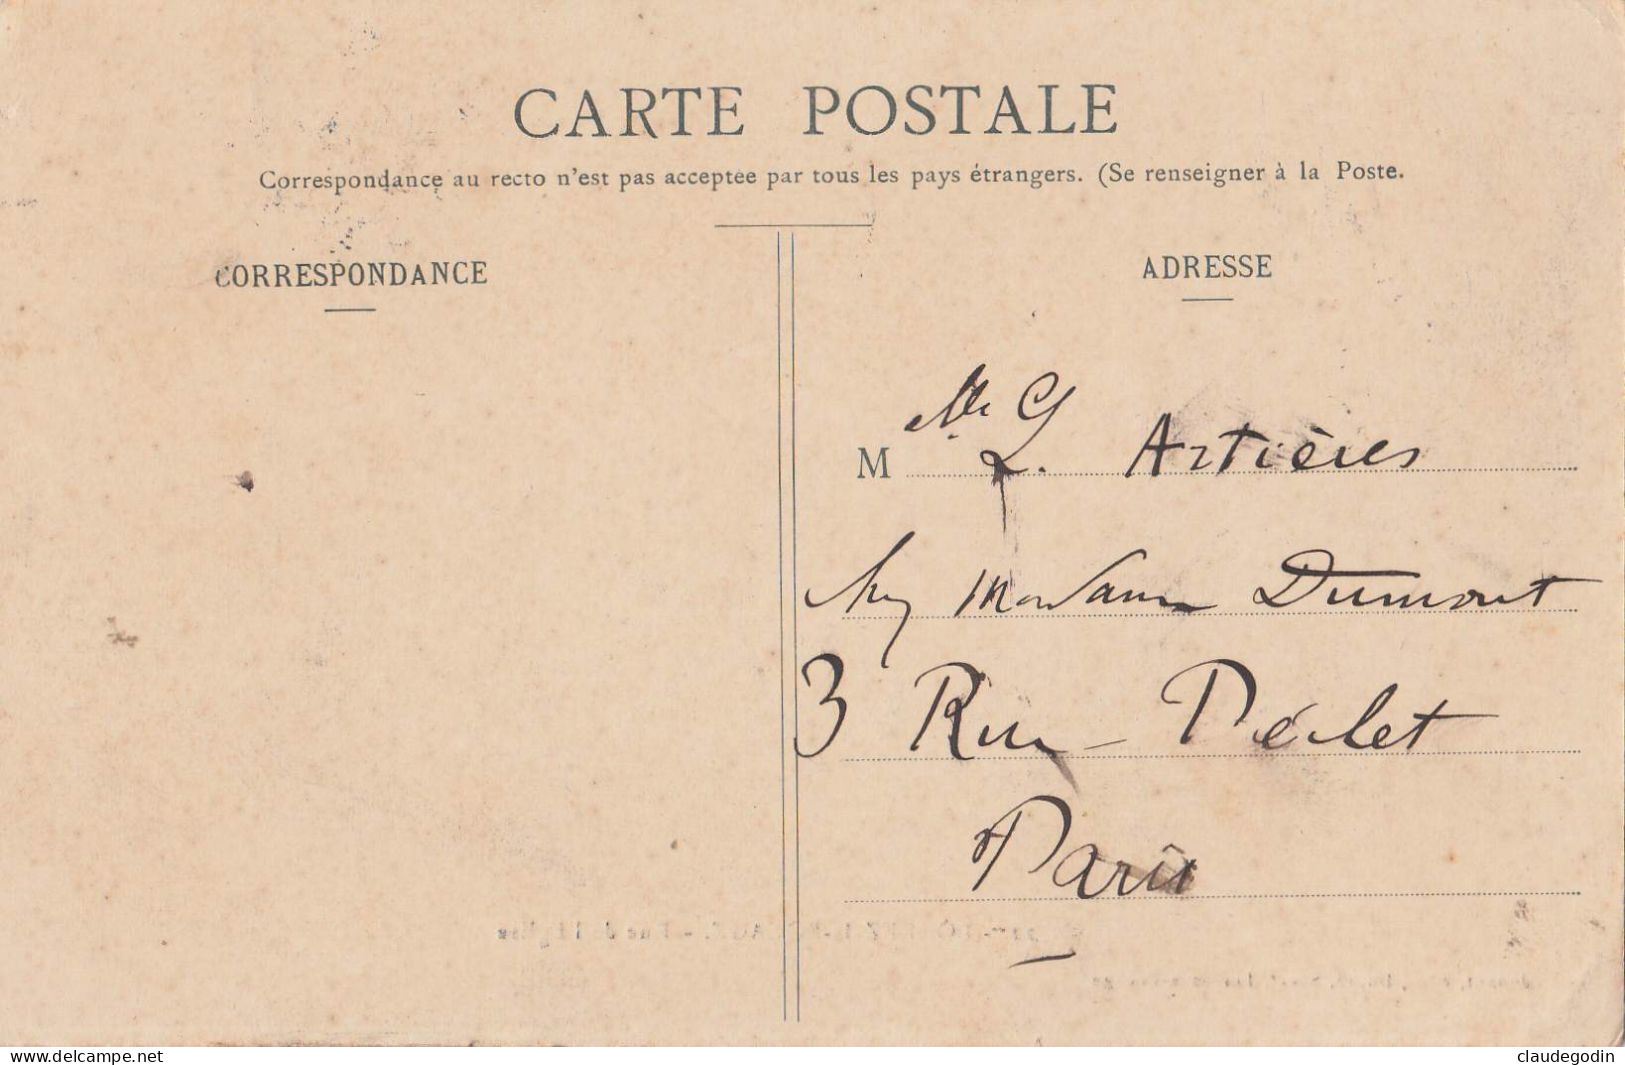 CARTE POSTALE
Correspondance au recto n'est pas acceptee par tous les pays étrangers. (Se renseigner à la Poste.
CORRESPONDANCE
ADRESSE
M L. Artières
chez Madame Dumont
3 Rue Perlet
Paris
www.delcampe.net
claudegodin